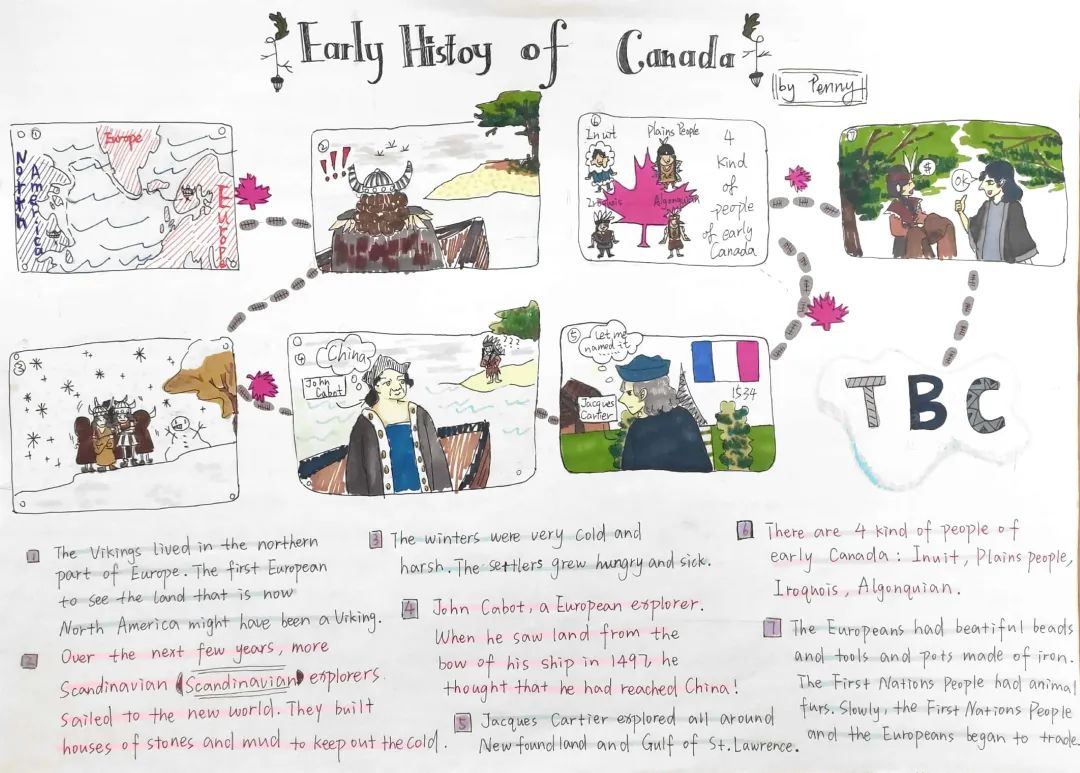 Early Histoy of Canada
by Penny
①
Europe
North
America
Europe
②
!!!
⑥
Inuit
Plains People
Iroquois
Algonquian
4
kind
of
people
of early
Canada
⑦
$
OK
③
④
China
John
Cabot
???
⑤
Let me
named it
Jacques
Cartier
1534
TBC
1 The Vikings lived in the northern
part of Europe. The first European
to see the land that is now
North America might have been a Viking.
2 Over the next few years, more
Scandinavian (Scandinavian) explorers
sailed to the new world. They built
houses of stones and mud to keep out the cold.
3 The winters were very cold and
harsh. The settlers grew hungry and sick.
4 John Cabot, a European explorer.
When he saw land from the
bow of his ship in 1497, he
thought that he had reached China!
5 Jacques Cartier explored all around
Newfoundland and Gulf of St. Lawrence.
6 There are 4 kind of people of
early Canada: Inuit, Plains people,
Iroquois, Algonquian.
7 The Europeans had beatiful beads
and tools and pots made of iron.
The First Nations People had animal
furs. Slowly, the First Nations People
and the Europeans began to trade.